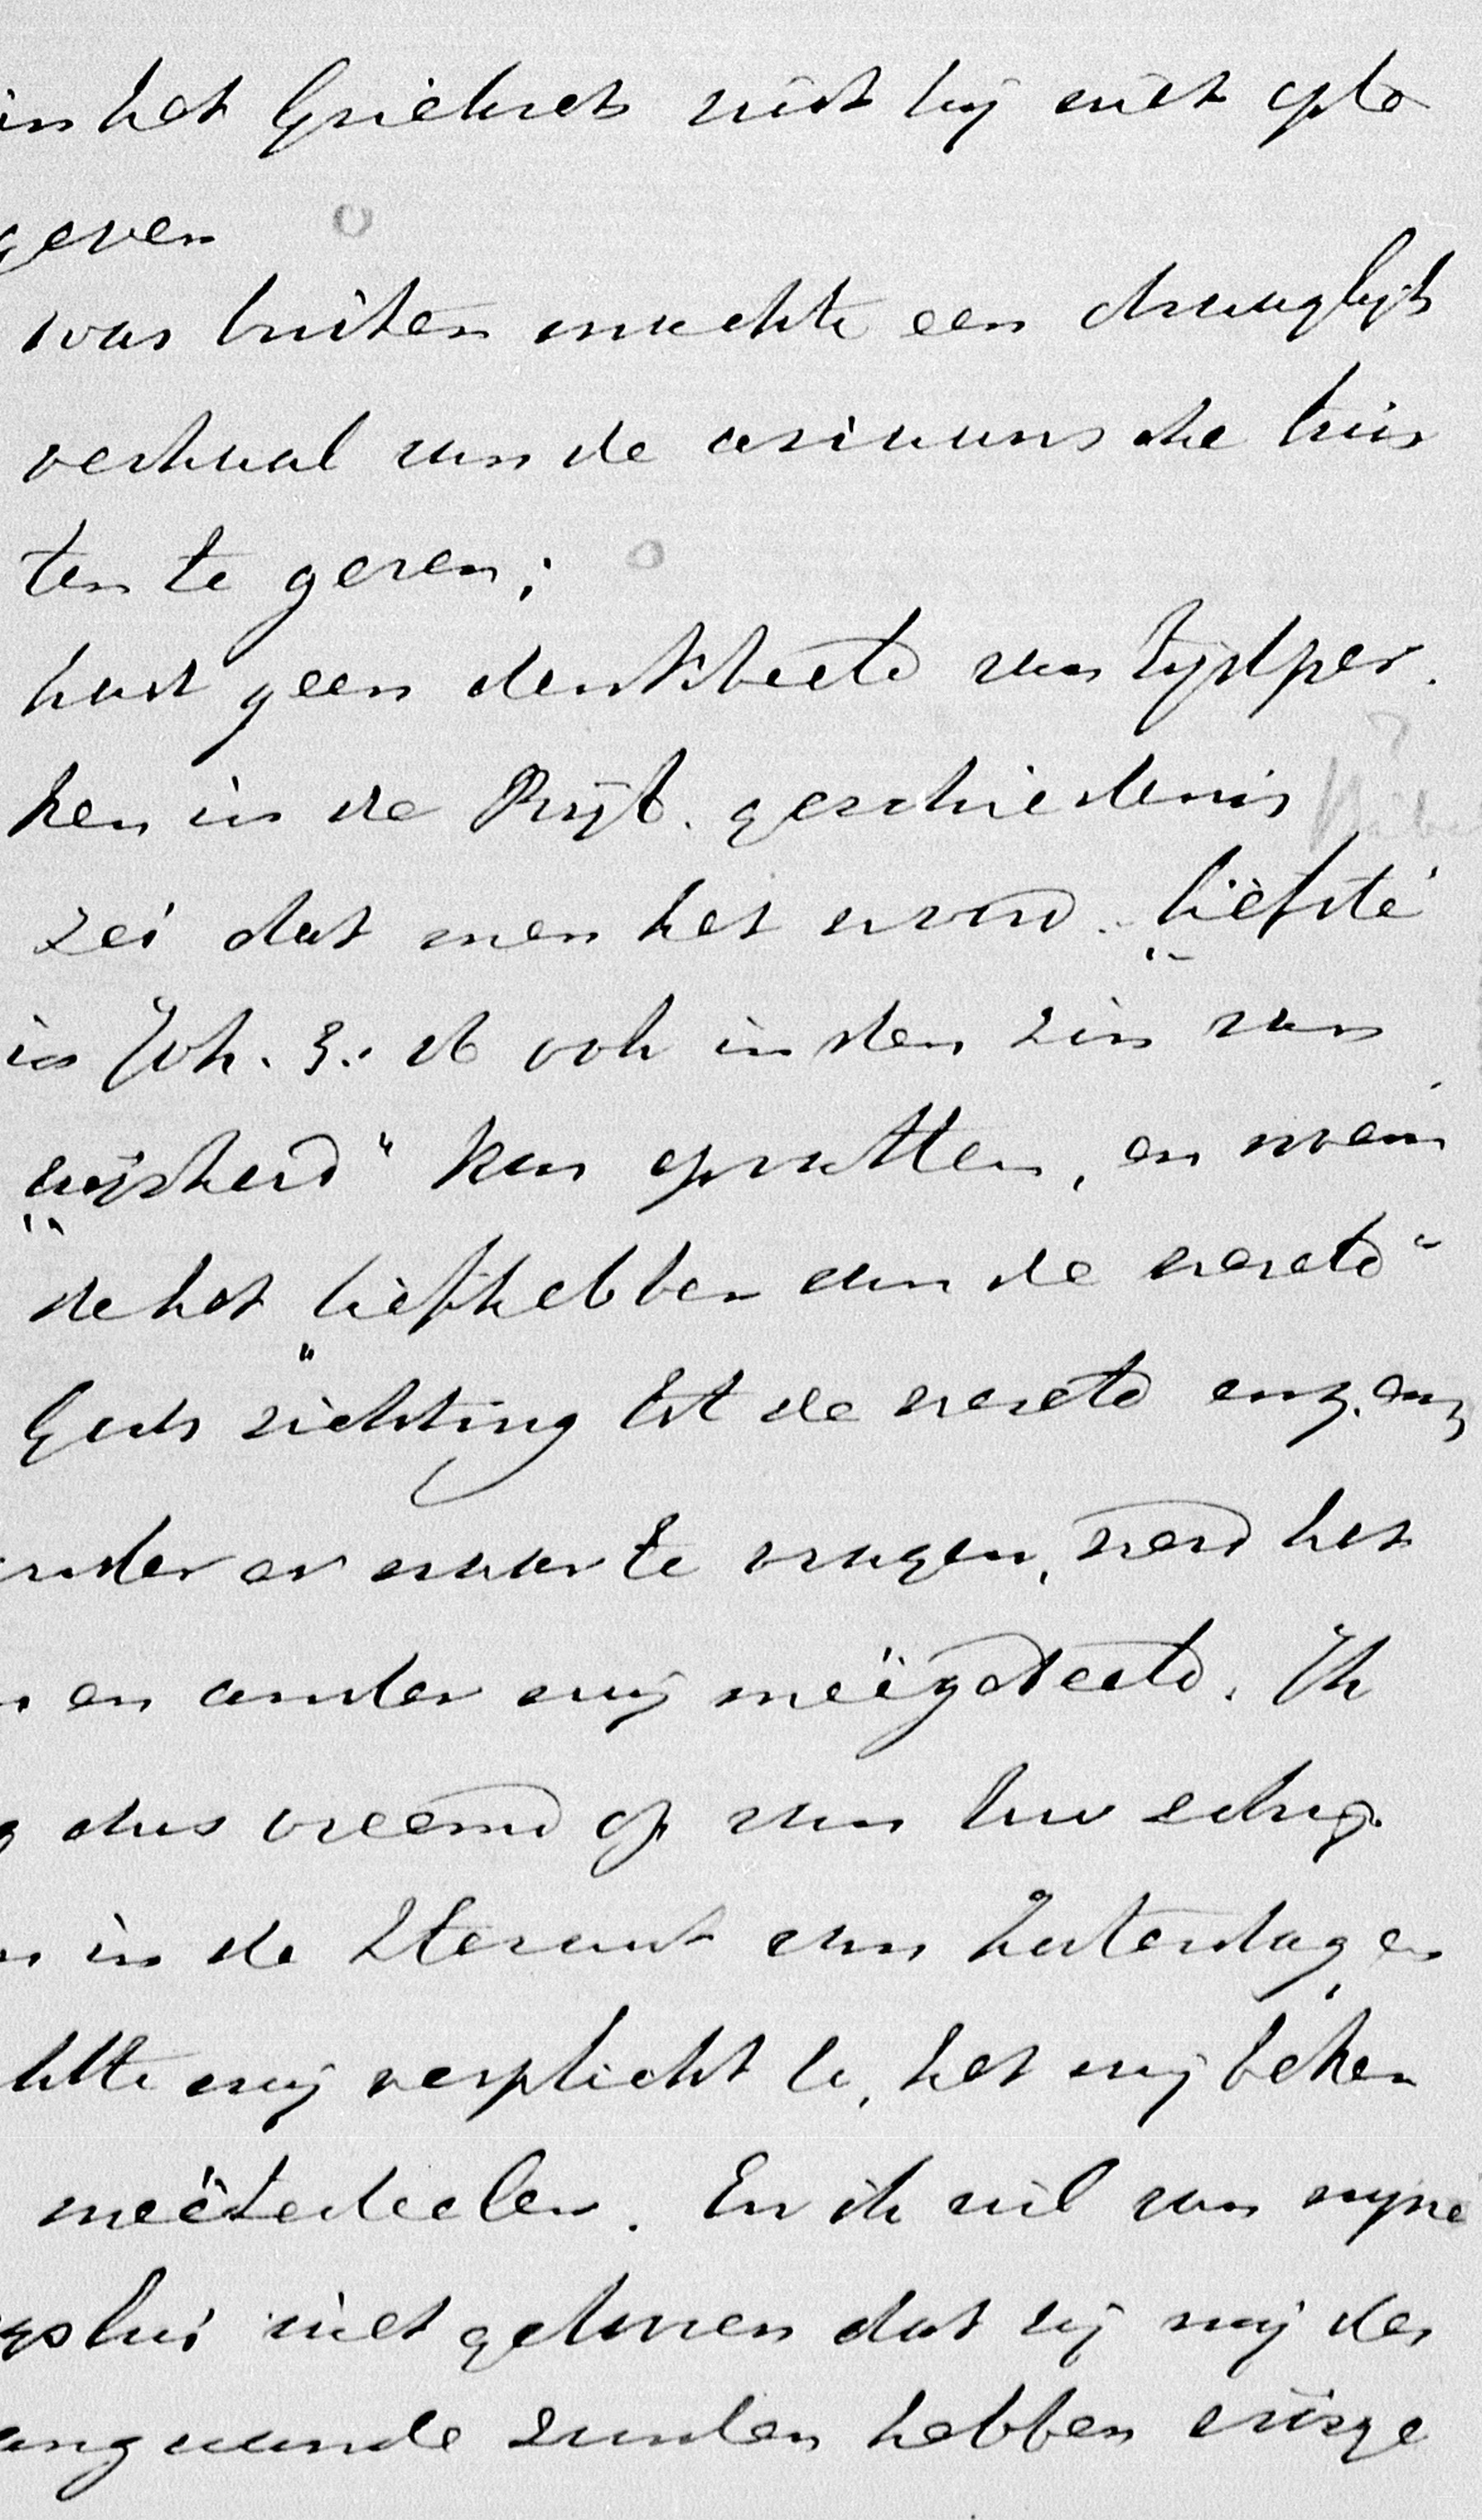 in het Grieksch wist hij niet op te
geven
was buiten machte een draaglijk
verhaal van de ariaansche twis
ten te geven;
had geen denkbeeld van tijdper.
ken in de Bijb. geschiedenis
zei dat men het woord „liefde"
in Joh. 3:16 ook in den zin van
„wijsheid" kan opvatten, en noem
de het „liefhebben van de wereld"
Gods richting tot de wereld enz. enz
onder er naar te vragen, werd het
en ander mij meêgedeeld. Ik
dus vreemd op van Uw schrij
in de Heraut van Zaterdag en
achtte mij verplicht U, het mij beken
meêtedeelen. En ik wil van mijne
niet gelooven dat zij mij de
aangaande zouden hebben wijsge